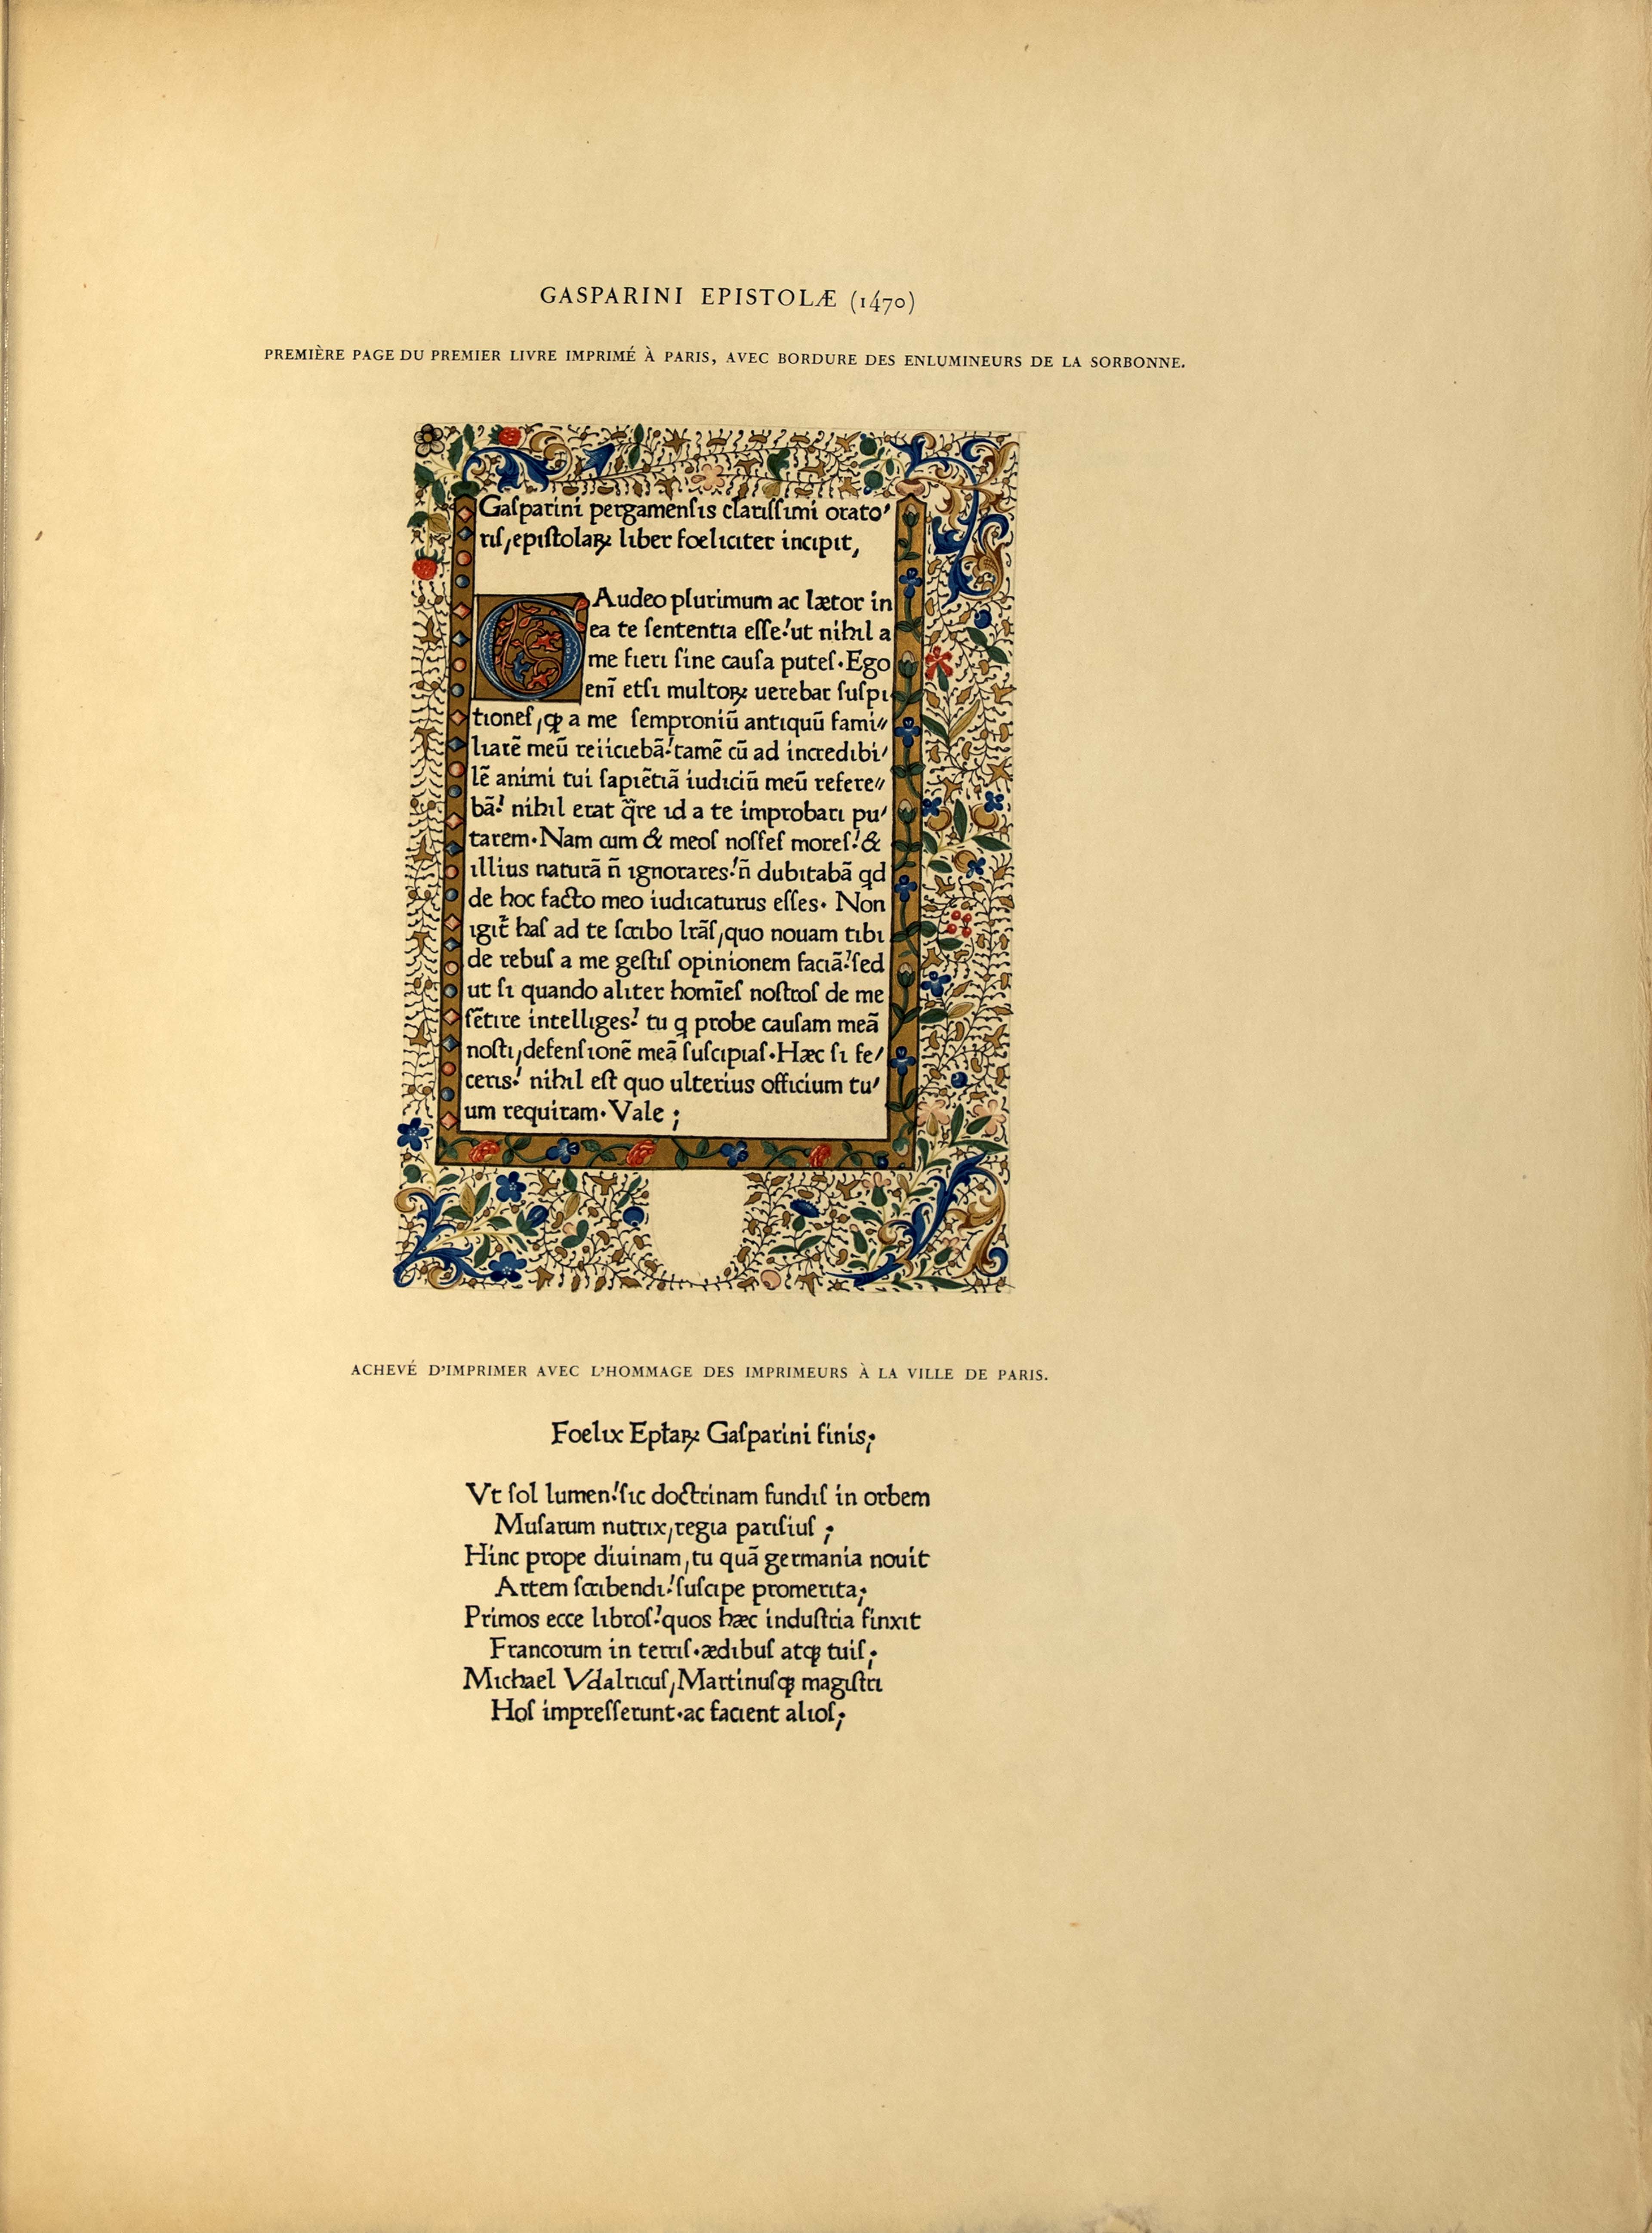 GASPARINI EPISTOLÆ (1470)
PREMIÈRE PAGE DU PREMIER LIVRE IMPRIMÉ À PARIS, AVEC BORDURE DES ENLUMINEURS DE LA SORBONNE.
Gaſparini pergamenſis clariſſimi orato'
riſ,epiſtolaꝝ liber foeliciter incipit,
GAudeo plurimum ac lætor in
ea te ſententia eſſe!ut nihil a
me fieri ſine cauſa puteſ·Ego
eni̅ etſi multoꝝ uerebar ſuſpi
tioneſ,ꝙ a me ſemproniu̅ antiquu̅ fami//
liare̅ meu̅ reiicieba̅!tame̅ cu̅ ad incredibi/
le̅ animi tui ſapie̅tia̅ iudiciu̅ meu̅ refere//
ba̅! nihil erat q̃re id a te improbari pu'
tarem·Nam cum & meoſ noſſeſ moreſ!&
illius natura̅ n̅ ignorares!n̅ dubitaba̅ qd
de hoc facto meo iudicaturus eſſes· Non
igit̃ haſ ad te ſcribo lr̅aſ,quo nouam tibi
de rebuſ a me geſtiſ opinionem facia̅!ſed
ut ſi quando aliter homi̅eſ noſtroſ de me
ſe̅tire intelliges! tu q probe cauſam mea̅
noſti,defenſione̅ mea̅ ſuſcipiaſ·Hæc ſi fe/
ceris! nihil eſt quo ulterius officium tu'
um requiram·Vale ;
ACHEVÉ D'IMPRIMER AVEC L'HOMMAGE DES IMPRIMEURS À LA VILLE DE PARIS.
Foelix Epłaꝝ Gaſparini finis;
Vt ſol lumen!ſic doctrinam fundiſ in orbem
Muſarum nutrix,regia pariſiuſ ;
Hinc prope diuinam,tu qua̅ germania nouit
Artem ſcribendi!ſuſcipe promerita;
Primos ecce libroſ!quos hæc induſtria finxit
Francorum in terriſ·ædibuſ atꝙ tuiſ;
Michael Vdalricuſ,Martinuſꝙ magiſtri
Hoſ impreſſerunt·ac facient alioſ;